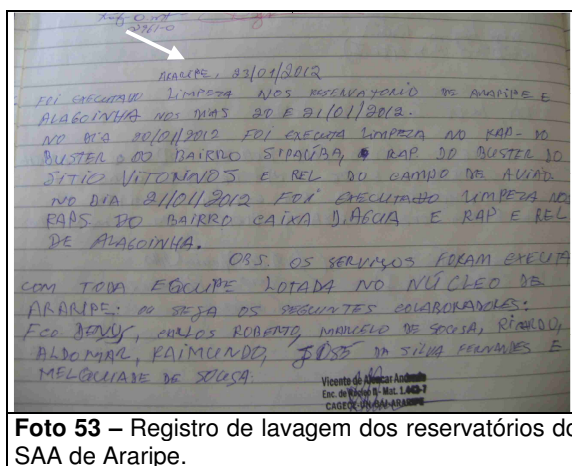 2961-0
ARARIPE, 23/01/2012
FOI EXECUTADO LIMPEZA NOS RESERVATORIO DE ARARIPE E
ALAGOINHA NOS DIAS 20 E 21/01/2012.
NO DIA 20/01/2012 FOI EXECUTA LIMPEZA NO RAP- DO
BUSTER DO BAIRRO SIPAÚBA, RAP. DO BUSTER DO
SITIO VITORINOS E REL DO CAMPO DE AVIAÇ
NO DIA 21/01/2012 FOI EXECUTADO LIMPEZA NOS
RAPS DO BAIRRO CAIXA D,AGUA E RAP E REL
DE ALAGOINHA.
OBS. OS SERVIÇOS FORAM EXECUTA
COM TODA EGUIPE LOTADA NO NÚCLEO DE
ARARIPE; OU SEJA OS SEGUINTES COLABORADORES:
FCO DENYS, CARLOS ROBERTO, MARCELO DE SOUSA, RINALDO,
ALDOMAR, RAIMUNDO, DA SILVA FERNANDES E
MELQUIADE DE SOUSA.
Vicente de Alencar Andrade
Enc. de Núcleo II- Mat. 1.443-7
CAGECE-UN-BAI-ARARIPE
Foto 53 – Registro de lavagem dos reservatórios do
SAA de Araripe.